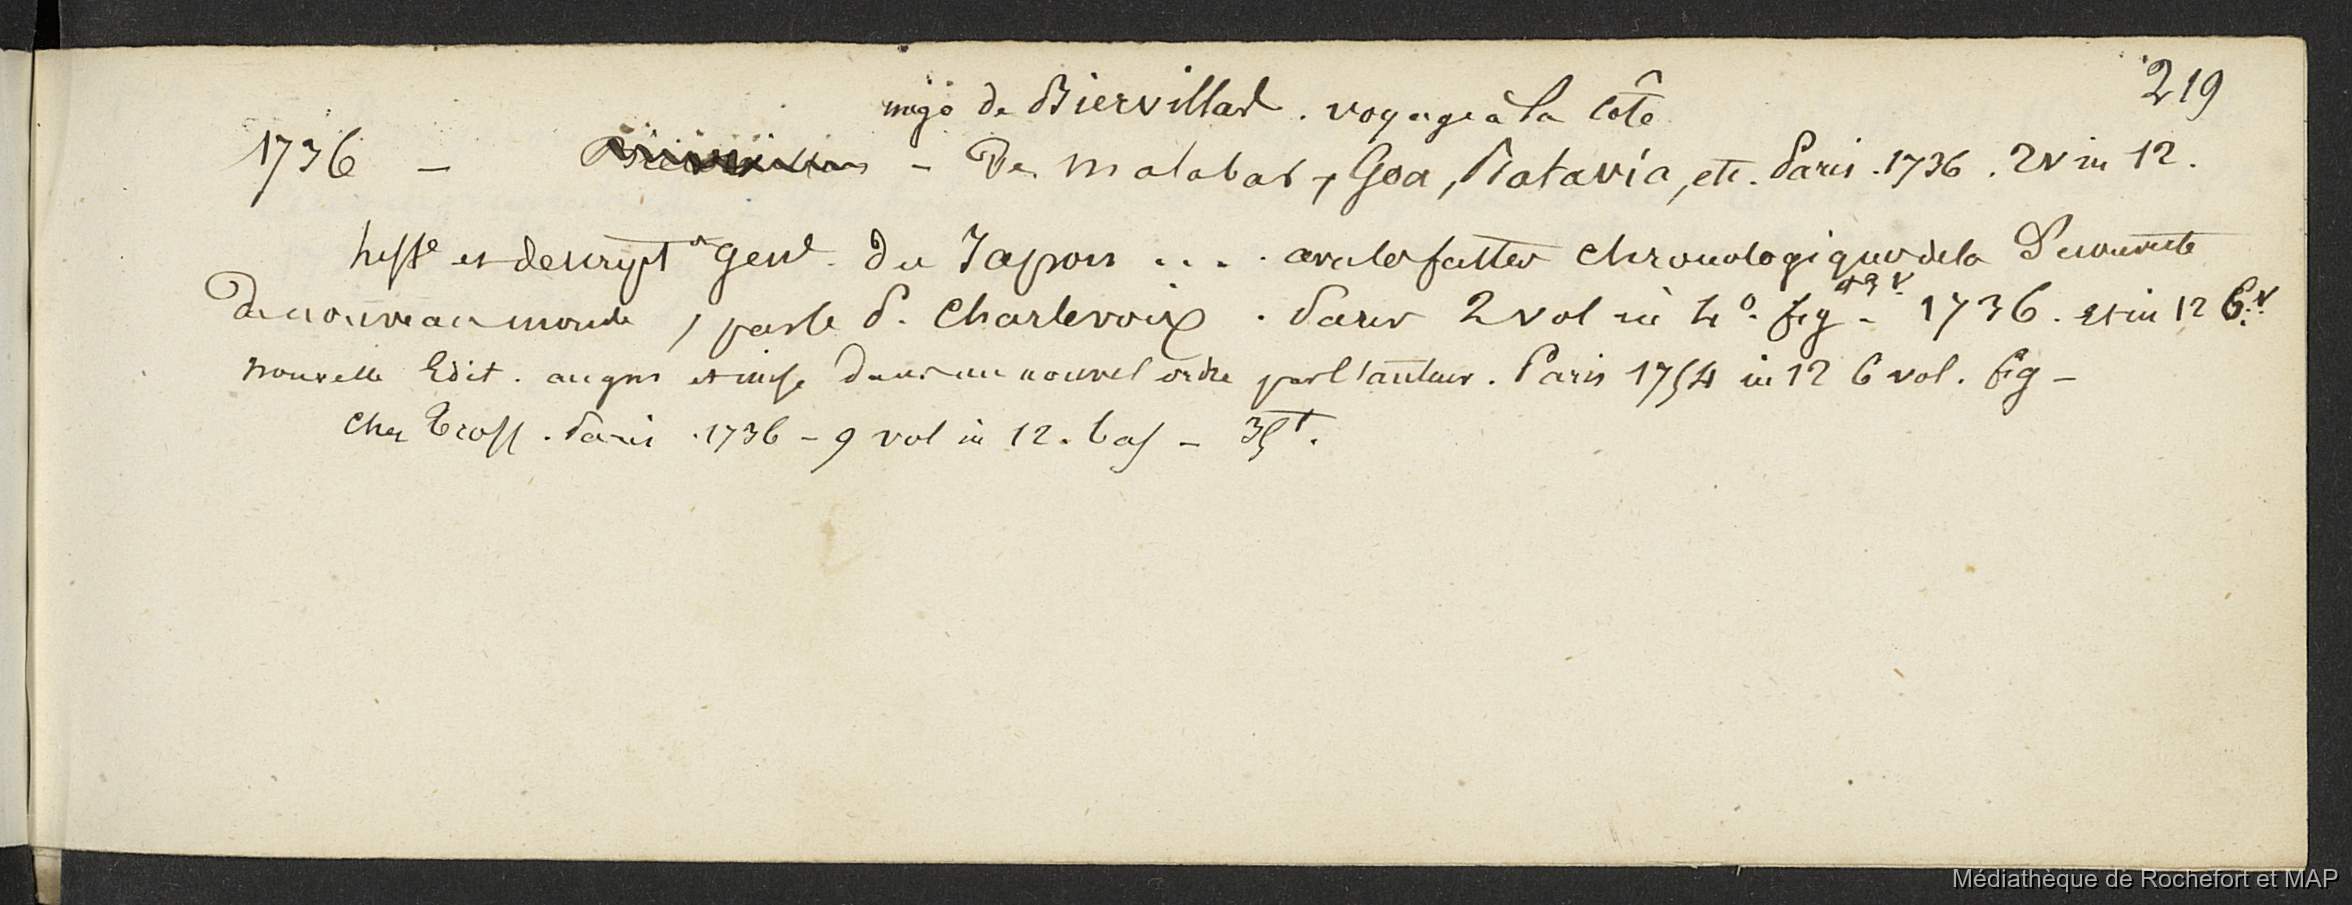 219
inigo de Biervillas . voyage à la Côte
1736 — – De Malabar, Goa, Batavia, etc. Paris . 1736 . 2 v in 12.
hist.e et descript.n gen.l du Japon .... avec les fastes chronologiques de la Decouverte
Du nouveau monde, par le P. Charlevoix . Paris 2 vol in 4°. fig – 1736 . et in 12 6.v
nouvelle Edit . augm et mise dans un nouvel ordre par l'auteur . Paris 1754 in 12 6 vol . fig –
chez Tross . Paris . 1736 – 9 vol in 12 . bas – 35 f.
Médiathèque de Rochefort et MAP